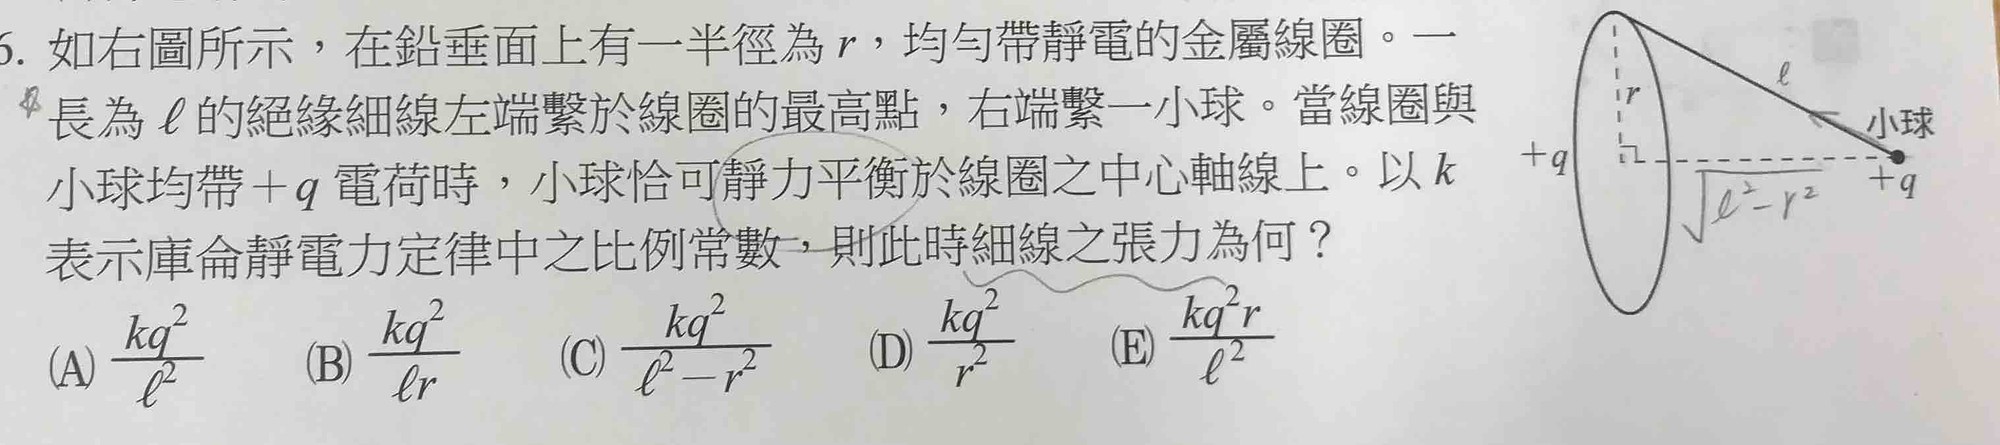 6. 如右圖所示，在鉛垂面上有一半徑為 r，均勻帶靜電的金屬線圈。一
長為 ℓ 的絕緣細線左端繫於線圈的最高點，右端繫一小球。當線圈與
小球均帶＋q 電荷時，小球恰可靜力平衡於線圈之中心軸線上。以 k
表示庫侖靜電力定律中之比例常數，則此時細線之張力為何？
(A) kq²/ℓ² (B) kq²/ℓr (C) kq²/(ℓ²－r²) (D) kq²/r² (E) kq²r/ℓ²
ℓ
r
小球
+q
+q
√(ℓ²－r²)